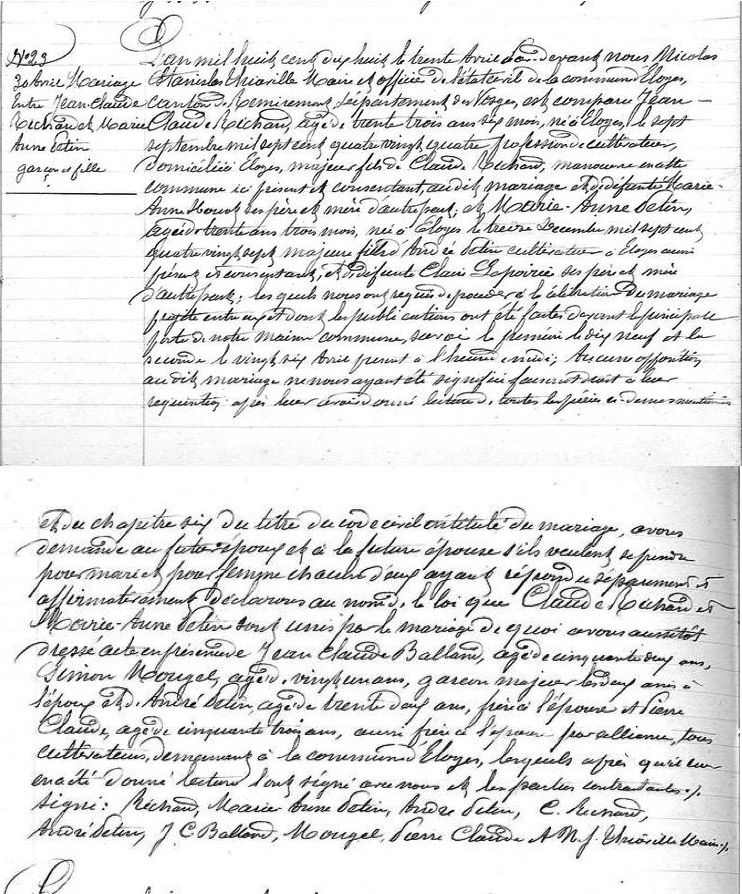 No 23
30 Avril Mariage
Entre Jean-Claude
Richard et Marie
Anne Petin
garçon et fille
L'an mil huit cent dix huit le trente Avril par devant nous Nicolas
Stanislas Thiaville Maire et officier de l'état civil de la commune d'Eloyes,
canton de Remiremont, Département des Vosges, est comparu Jean-
Claude Richard, agé de trente trois ans six mois, né à Eloyes, le sept
septembre mil sept cent quatre vingt quatre profession de cultivateur,
domicilié à Eloyes, majeur fils de Claude Richard, manœuvre en cette
commune ici présent et consentant, au dit mariage et de défunte Marie-
Anne ses père et mère d'autre part; et Marie-Anne Petin,
agée de trente ans trois mois, née à Eloyes le treize Décembre mil sept cent
quatre vingt sept majeure fille d'André Petin cultivateur à Eloyes aussi
présent et consentant; et de défunte Claire Lapoirie ses père et mère
d'autre part; lesquels nous ont requis de procéder à la célébration du mariage
projetté entre eux et dont les publications ont été faites devant la principale
porte de notre maison commune, savoir la première le dix neuf et la
seconde le vingt six Avril présent à l'heure de midi; Aucune opposition
au dit mariage ne nous ayant été signifiée faisant droit à leur
requisition après leur avoir donné lecture de toutes les pièces ci-dessus mentionnées
et du chapitre six du titre du code civil intitulé du mariage, avons
demandé au futur époux et à la future épouse s'ils veulent se prendre
pour mari et pour femme chacun d'eux ayant répondu séparément et
affirmativement déclarons au nom de la loi que Claude Richard et
Marie-Anne Petin sont unis par le mariage de quoi avons aussitôt
dressé acte en présence de Jean Claude Balland, agé de cinquante deux ans,
Simon Mougel, agé de vingt un ans, garçon majeur les deux amis à
l'époux et d'André Petin, agé de trente deux ans, frère à l'épouse et Pierre
Claude, agé de cinquante trois ans, aussi frère à l'époux par alliance, tous
cultivateurs, demeurant à la commune d'Eloyes, lesquels après qu'il leur
en a été donné lecture l'ont signé avec nous et les parties contractantes./.
Signé: Richard, Marie Anne Petin, André Petin, C. Richard,
André Petin, J. C. Balland, Mougel, Pierre Claude et N. S. Thiaville Maire./.